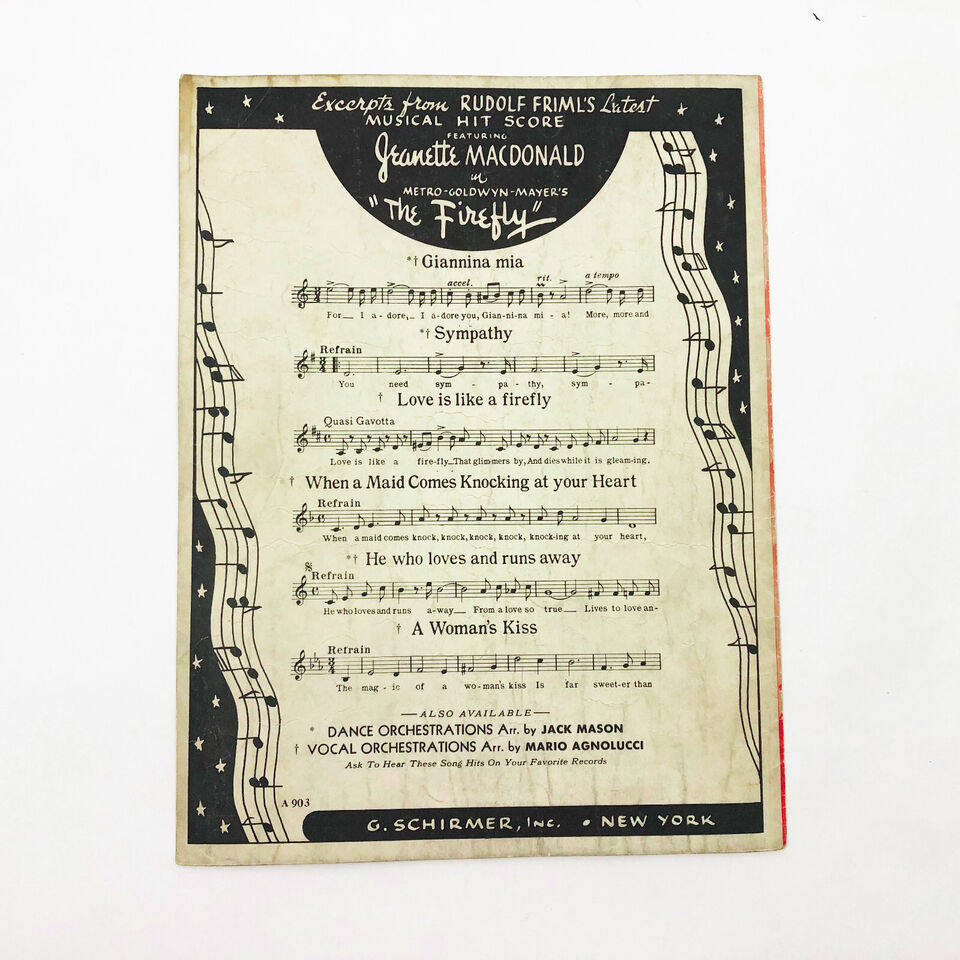 Excerpts from RUDOLF FRIML'S Latest
MUSICAL HIT SCORE
FEATURING
Jeanette MACDONALD
in
METRO-GOLDWYN-MAYER'S
"The Firefly"
*† Giannina mia
accel. rit. a tempo
For__ I a-dore,_ I a-dore you, Gian-ni-na mi - a! More, more and
*† Sympathy
Refrain
You need sym - pa - thy, sym - pa-
† Love is like a firefly
Quasi Gavotta
Love is like a fire-fly__That glim-mers by, And dies while it is gleam-ing.
† When a Maid Comes Knocking at your Heart
Refrain
When a maid comes knock, knock, knock, knock, knock-ing at your heart,
*† He who loves and runs away
Refrain
He who loves and runs a-way__ From a love so true__ Lives to love an-
† A Woman's Kiss
Refrain
The mag - ic of a wo-man's kiss Is far sweet-er than
—ALSO AVAILABLE—
* DANCE ORCHESTRATIONS Arr. by JACK MASON
† VOCAL ORCHESTRATIONS Arr. by MARIO AGNOLUCCI
Ask To Hear These Song Hits On Your Favorite Records
A 903
G. SCHIRMER, INC. • NEW YORK